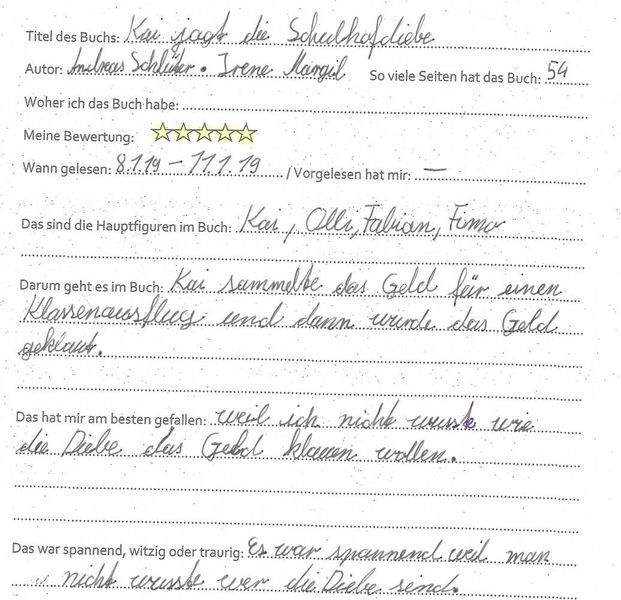 Titel des Buchs: Kai jagt die Schulhofdiebe
Autor: Andreas Schlüter • Irene Margil So viele Seiten hat das Buch: 54
Woher ich das Buch habe:
Meine Bewertung: ☆☆☆☆☆
Wann gelesen: 8.1.19 – 11.1.19 / Vorgelesen hat mir: —
Das sind die Hauptfiguren im Buch: Kai, Olli, Fabian, Fimo
Darum geht es im Buch: Kai sammelte das Geld für einen
Klassenausflug und dann wurde das Geld
geklaut.
Das hat mir am besten gefallen: weil ich nicht wusste wie
die Diebe das Geld klauen wollen.
Das war spannend, witzig oder traurig: Es war spannend weil man
nicht wusste wer die Diebe sind.